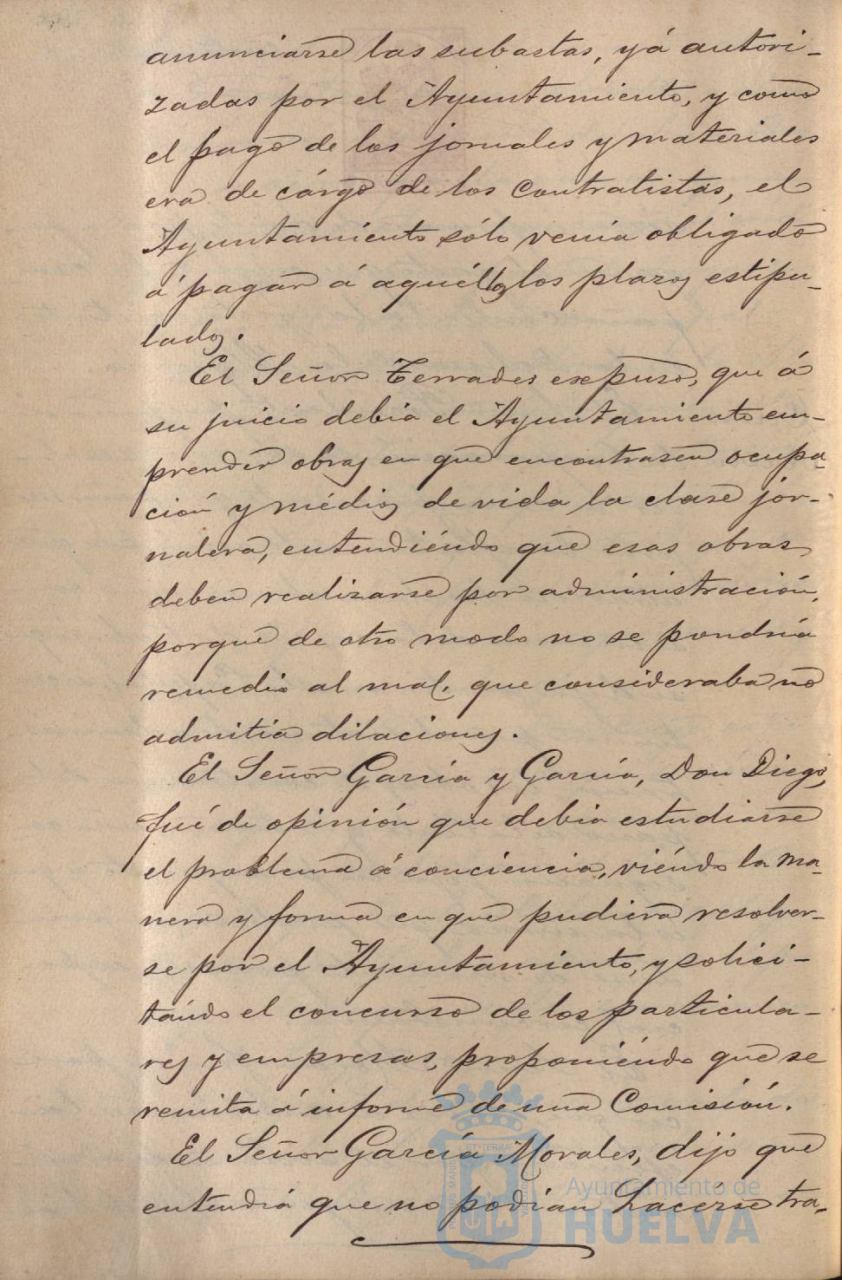 anunciarse las subastas, yá autori-
zadas por el Ayuntamiento, y como
el pago de los jornales y materiales
era de cárgo de los Contratistas, el
Ayuntamiento sólo venia obligado
á pagar á aquéllos los plazos estipu-
lados.
El Señor Terrades expuso, que á
su juicio debia el Ayuntamiento em-
prender obras en que encontrasen ocupa-
ción y médios de vida la clase jor-
nalera, entendiéndo que esas obras
deben realizarse por administración,
porque de otro modo no se pondria
remedio al mal, que consideraba no
admitia dilaciones.
El Señor García y García, Don Diego,
fué de opinión que debia estudiarse
el problema á conciencia, viéndo la ma-
nera y forma en que pudiera resolver-
se por el Ayuntamiento, y solici-
tándo el concurso de los particula-
res y empresas, proponiéndo que se
remita á informe de una Comisión.
El Señor García Morales, dijo que
entendia que no podian hacerse tra-
Ayuntamiento de
HUELVA